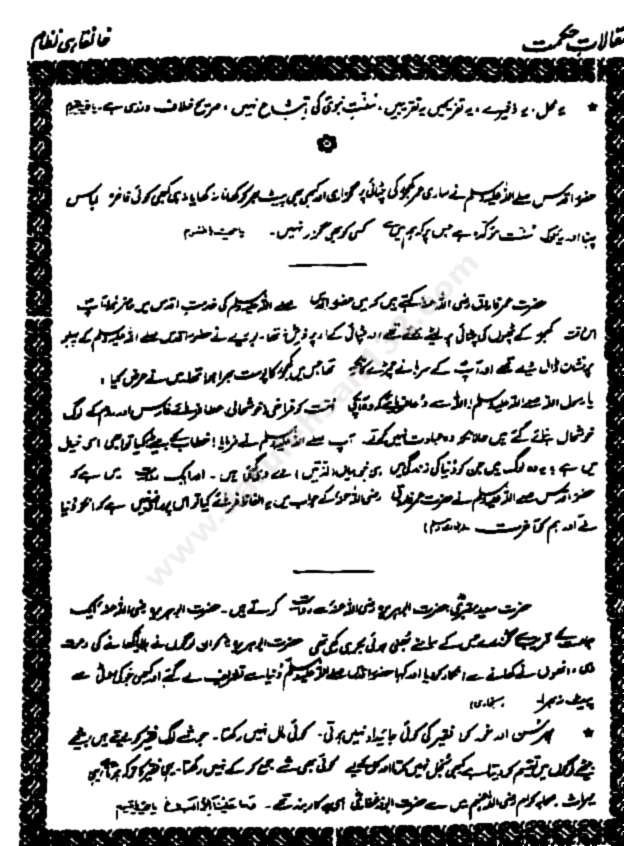 مقالات حکمت
خانقاہی نظام
★ یہ محل، یہ ذخیرے، یہ تفریحیں یہ تقریبیں، سنت نبویؐ کی اتباع نہیں، صریح خلاف ورزی ہے۔ یا حی یا قیوم
حضور اقدس صلے اللہ علیہ وسلم نے ساری عمر کھجور کی چٹائی پر گزاری اور کبھی بھی پیٹ بھر کر کھانا نہ کھایا نہ ہی کبھی کوئی فاخرہ لباس
پہنا اور یہ سنت مؤکدہ ہے جس پر کہ ہم میں سے کسی کو بھی گزر نہیں۔ یا حی یا قیوم
حضرت عمر فاروق رضی اللہ عنہ کہتے ہیں کہ میں حضور اقدس صلے اللہ علیہ وسلم کی خدمت اقدس میں حاضر ہوا آپ
اس وقت کھجور کے پتوں کی چٹائی پر لیٹے ہوئے تھے اور چٹائی کے اوپر فرش نہ تھا۔ بوریے نے حضور اقدس صلے اللہ علیہ وسلم کے پہلو
پر نشان ڈال دیے تھے اور آپ کے سرہانے چمڑے کا تکیہ تھا جس میں کھجور کا پوست بھرا ہوا تھا میں نے عرض کیا؛
یا رسول اللہ صلے اللہ علیہ وسلم! اللہ سے دعا فرمایئے کہ وہ آپ کی امت کو فراخی (خوشحالی) عطا فرمائے فارس اور روم کے لوگ
خوشحال بنائے گئے ہیں حالانکہ وہ عبادت نہیں کرتے۔ آپ صلے اللہ علیہ وسلم نے فرمایا! خطاب کے بیٹے کیا تو ابھی اسی خیال
میں ہے؛ یہ وہ لوگ ہیں جن کو دنیا کی زندگی میں ہی نعمتیں (لذتیں) دے دی گئی ہیں۔ اور ایک روایت میں ہے کہ
حضور اقدس صلے اللہ علیہ وسلم نے حضرت عمر فاروق رضی اللہ عنہ کے جواب میں یہ الفاظ فرمائے کیا تو اس پر راضی نہیں ہے کہ انکو دنیا
ملے اور ہم کو آخرت
حضرت سعید مقبری، حضرت ابو ہریرہ رضی اللہ عنہ سے روایت کرتے ہیں۔ حضرت ابو ہریرہ رضی اللہ عنہ ایک
جماعت کے قریب سے گزرے جس کے سامنے بھنی ہوئی بکری رکھی تھی حضرت ابو ہریرہ کو ان لوگوں نے بلایا کھانے کی دعوت
دی، انھوں نے کھانے سے انکار کر دیا اور کہا حضور اقدس صلے اللہ علیہ وسلم دنیا سے تشریف لے گئے اور کبھی جَو کی روٹی سے
پیٹ نہ بھرا۔ (بخاری)
★ پھر سُن اور غور کر! فقیر کی کوئی جائیداد نہیں ہوتی۔ کوئی مال نہیں رکھتا۔ جو شے لوگ فقیر کو دیتے ہیں
لوگوں میں تقسیم کر دیتا ہے کبھی بخل نہیں کرتا اور کل کے لیے کوئی بھی شے جمع کر کے نہیں رکھتا۔ یہی فقیر کا ترکہ ہوتا ہے یہی
میراث، صحابہ کرام رضی اللہ عنہم میں سے حضرت ابوذر غفاریؓ اسی پہ کاربند تھے۔ وَمَا عَلَيْنَا إِلَّا الْبَلَاغ یا حی یا قیوم
www.
.com